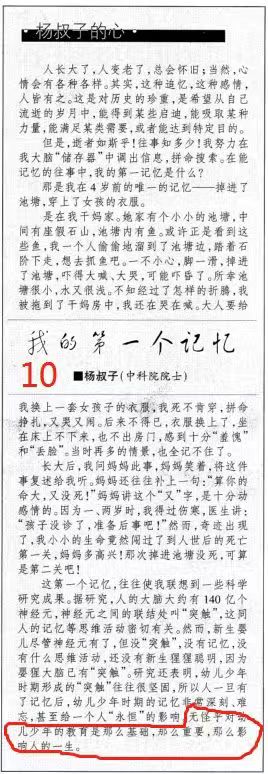 ·杨叔子的心·
人长大了,人变老了,总会怀旧;当然,心
情会有各种各样。其实,这种追忆,这种感情,
人皆有之。这是对历史的珍重,是希望从自己
流逝的岁月中,能得到某些启迪,能吸取某种
力量,能满足某类需要,或者能达到特定目的。
但是,逝者如斯乎!往事知多少?我努力在
我大脑“储存器”中调出信息,拼命搜索。在能
记忆的往事中,我的第一记忆是什么?
那是我在4岁前的唯一的记忆——掉进了
池塘,穿上了女孩的衣服。
是在我干妈家。她家有个小小的池塘,中
间有座假石山,池塘内有鱼。或许正是看到这
些鱼,我一个人偷偷地溜到了池塘边,踏着石
阶下走,想去抓鱼吧。一不小心,脚一滑,掉进
了池塘,吓得大喊、大哭,可能吓昏了。所幸池
塘很小,水又很浅。不知经过了怎样的折腾,我
被拖到了干妈房中,我还在哭在喊。大人要给
我的第一个记忆
10
■杨叔子(中科院院士)
我换上一套女孩子的衣服,我死不肯穿,拼命
挣扎,又哭又闹。后来不得已,衣服换上了,坐
在床上不下来,也不出房门,感到十分“羞愧”
和“丢脸”。当时再多的情景,也全记不住了。
长大后,我问妈妈此事,妈妈笑着,将这件
事复述给我听。妈妈还往往补上一句:“算你的
命大,又没死!”妈妈讲这个“又”字,是十分动
感情的。因为一、两岁时,我得过伤寒,医生讲:
“孩子没诊了,准备后事吧!”然而,奇迹出现
了,我小小的生命竟然闯过了到人世后的死亡
第一关,妈妈多高兴!那次掉进池塘没死,可算
是第二关吧!
这第一个记忆,往往使我联想到一些科学
研究成果。据研究,人的大脑大约有140亿个
神经元,神经元之间的联结处叫“突触”,这同
人的记忆等思维活动密切有关。然而,新生婴
儿尽管神经元有了,但没“突触”,没有记忆,没
有什么思维活动,还没有新生猩猩聪明,因为
婴猩大脑已有“突触”。研究还表明,幼儿少年
时期形成的“突触”往往很坚固,所以人一旦有
了记忆后,幼儿少年时期的记忆非常深刻、难
忘,甚至给一个人“永恒”的影响。无怪乎对幼
儿少年的教育是那么基础,那么重要,那么影
响人的一生。